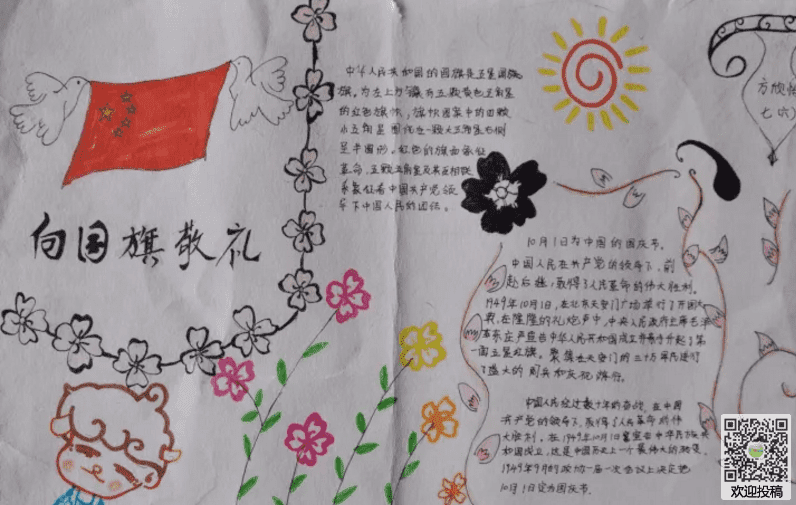 向国旗敬礼
中华人民共和国的国旗是五星红旗
旗。为左上方镶有五颗黄色五角星
的红色旗帜，旗帜图案中的四颗
小五角星围绕在一颗大五角星右侧
呈半圆形。红色的旗面象征
革命，五颗五角星及其互相联
系象征着中国共产党领
导下中国人民的团结。
方欣
七(六)
10月1日为中国的国庆节。
中国人民在共产党的领导下，前
赴后继，取得了人民革命的伟大胜利。
1949年10月1日，在北京天安门广场举行了开国
典，在隆隆的礼炮声中，中央人民政府主席毛泽
东庄严宣告中华人民共和国成立并亲手升起了第
一面五星红旗。聚集在天安门的三十万军民进行
了盛大的阅兵和庆祝游行。
中国人民经过数十年的奋战，在中国
共产党的领导下，取得了人民革命的伟
大胜利，在1949年10月1日宣告中华人民共
和国成立，这是中国历史上一个最伟大的转变。
1949年9月的政协一届一次会议上决定把
10月1日定为国庆节。
欢迎投稿